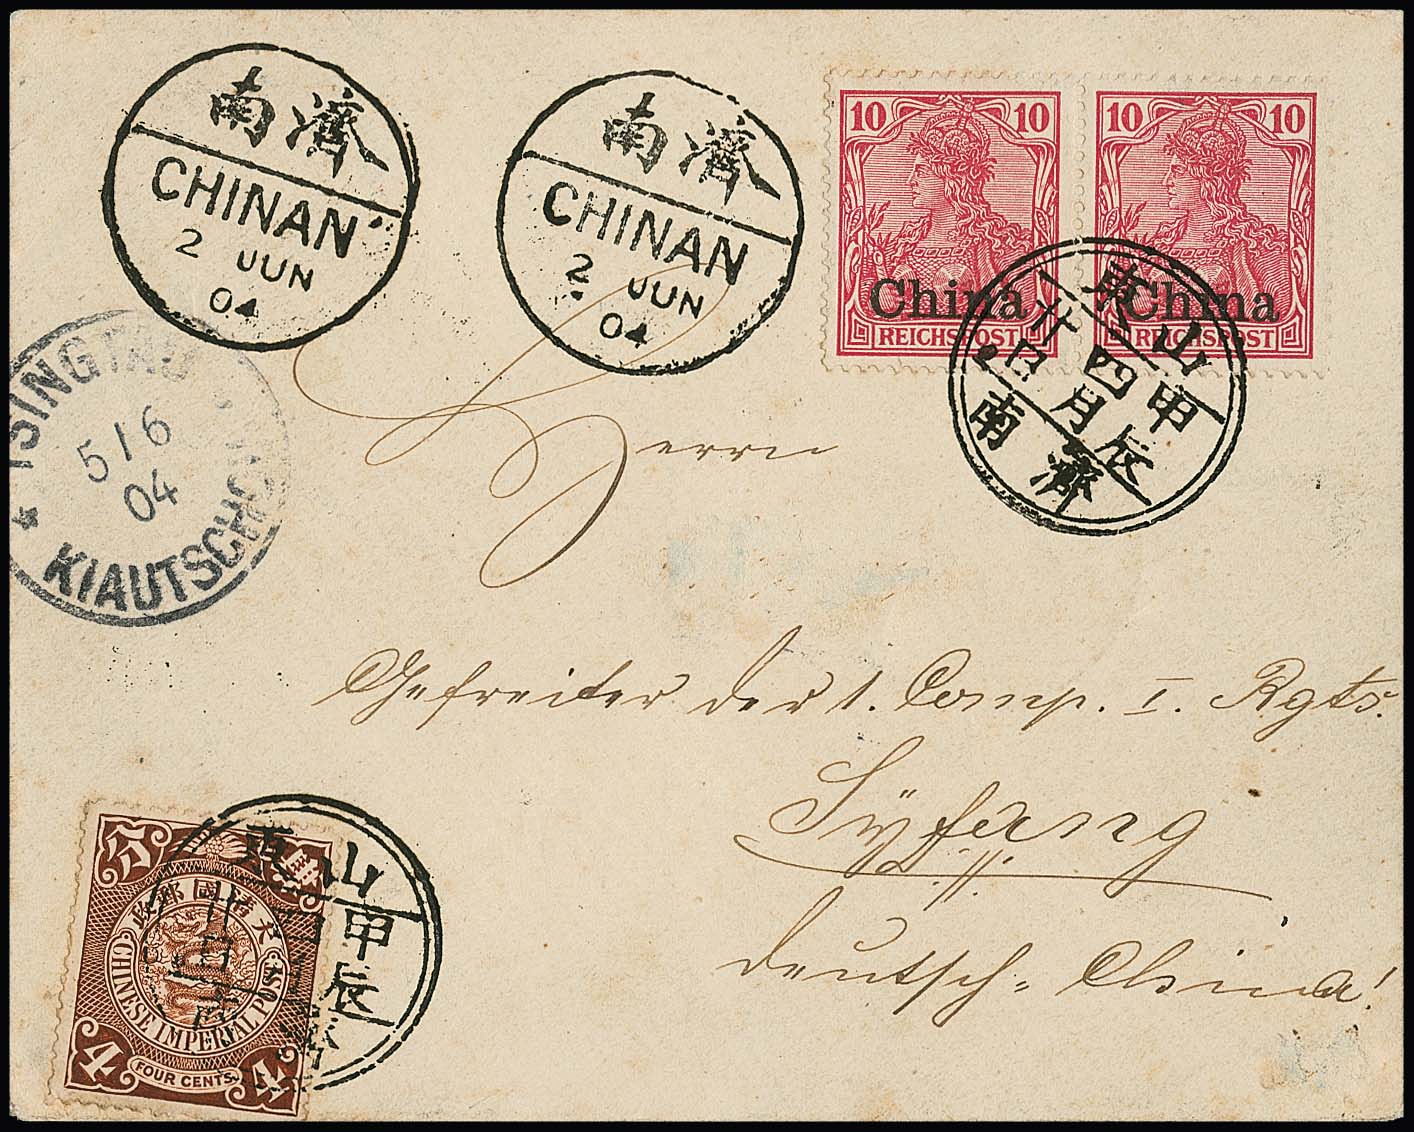 濟南
CHINAN
2 JUN
04
濟南
CHINAN
2 JUN
04
10 10
China
REICHSPOST
10 10
China
REICHSPOST
山東
甲辰
四月
濟南
TSINGTAU
5/6
04
KIAUTSCHOU
Herrn
Gefreiter der 1. Comp. I. Rgts.
Sÿfang
Deutsch-China!
大清國郵政
CHINESE IMPERIAL POST
4 4
FOUR CENTS
山東
甲辰